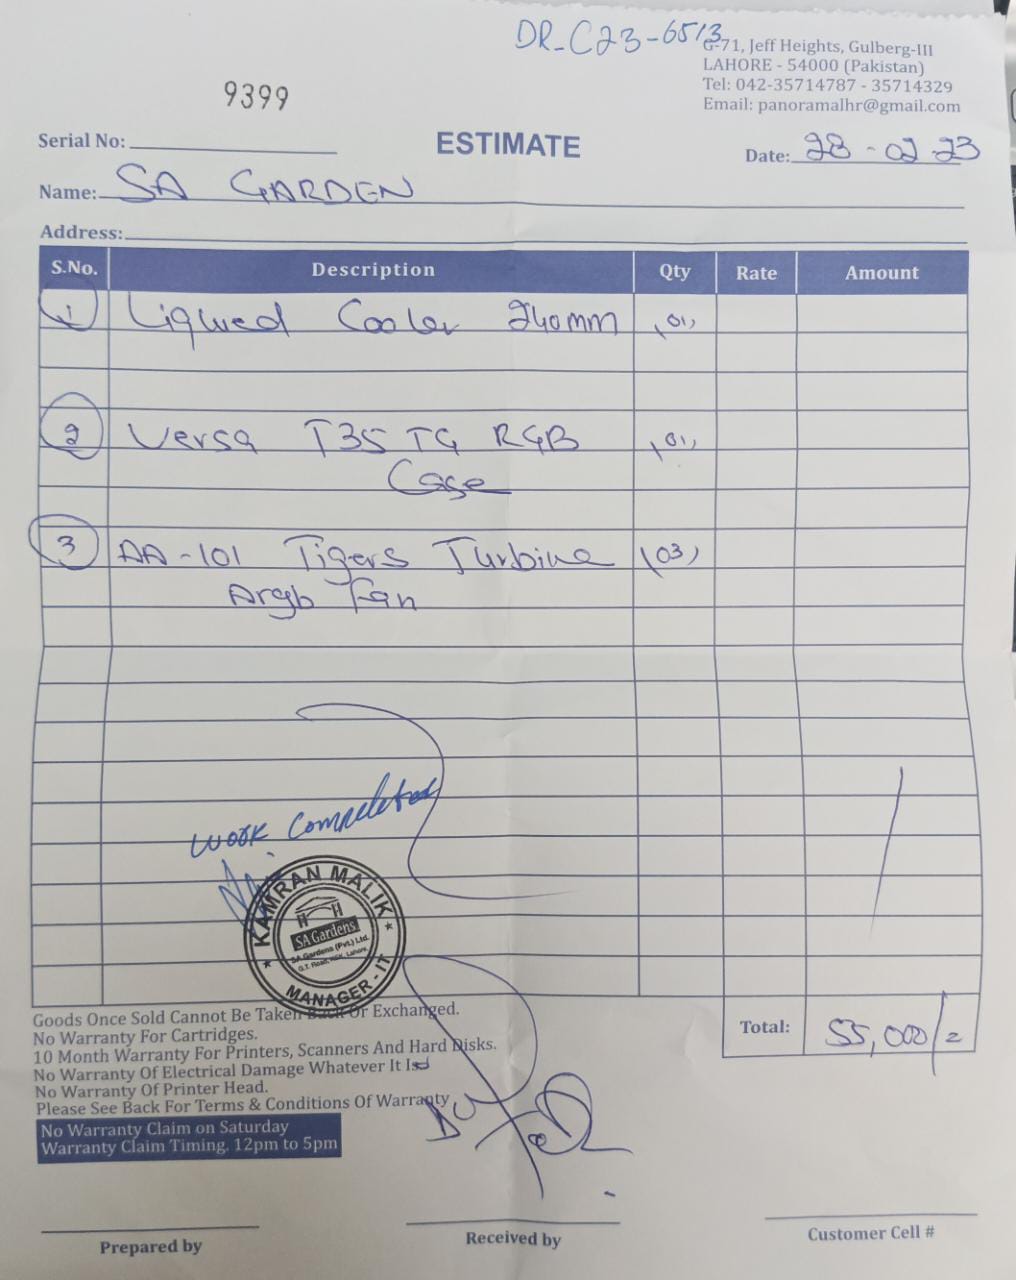 DR_C23-6513
G-71, Jeff Heights, Gulberg-III
LAHORE - 54000 (Pakistan)
Tel: 042-35714787 - 35714329
Email: panoramalhr@gmail.com
9399
Serial No:
ESTIMATE
Date: 28-02-23
Name: SA GARDEN
Address:
S.No. Description Qty Rate Amount
1 Liqued Cooler 240mm (01)
2 Versa T35 TG RGB (01)
Case
3 AA-101 Tigers Turbine (03)
Argb Fan
Work Completed
KAMRAN MALIK
SA Gardens
SA Gardens (Pvt.) Ltd.
G.T. Road, KSK, Lahore.
MANAGER - IT
Goods Once Sold Cannot Be Taken Back Or Exchanged.
No Warranty For Cartridges.
10 Month Warranty For Printers, Scanners And Hard Disks.
No Warranty Of Electrical Damage Whatever It Is
No Warranty Of Printer Head.
Please See Back For Terms & Conditions Of Warranty
Total: 55,000/=
No Warranty Claim on Saturday
Warranty Claim Timing. 12pm to 5pm
Prepared by
Received by
Customer Cell #